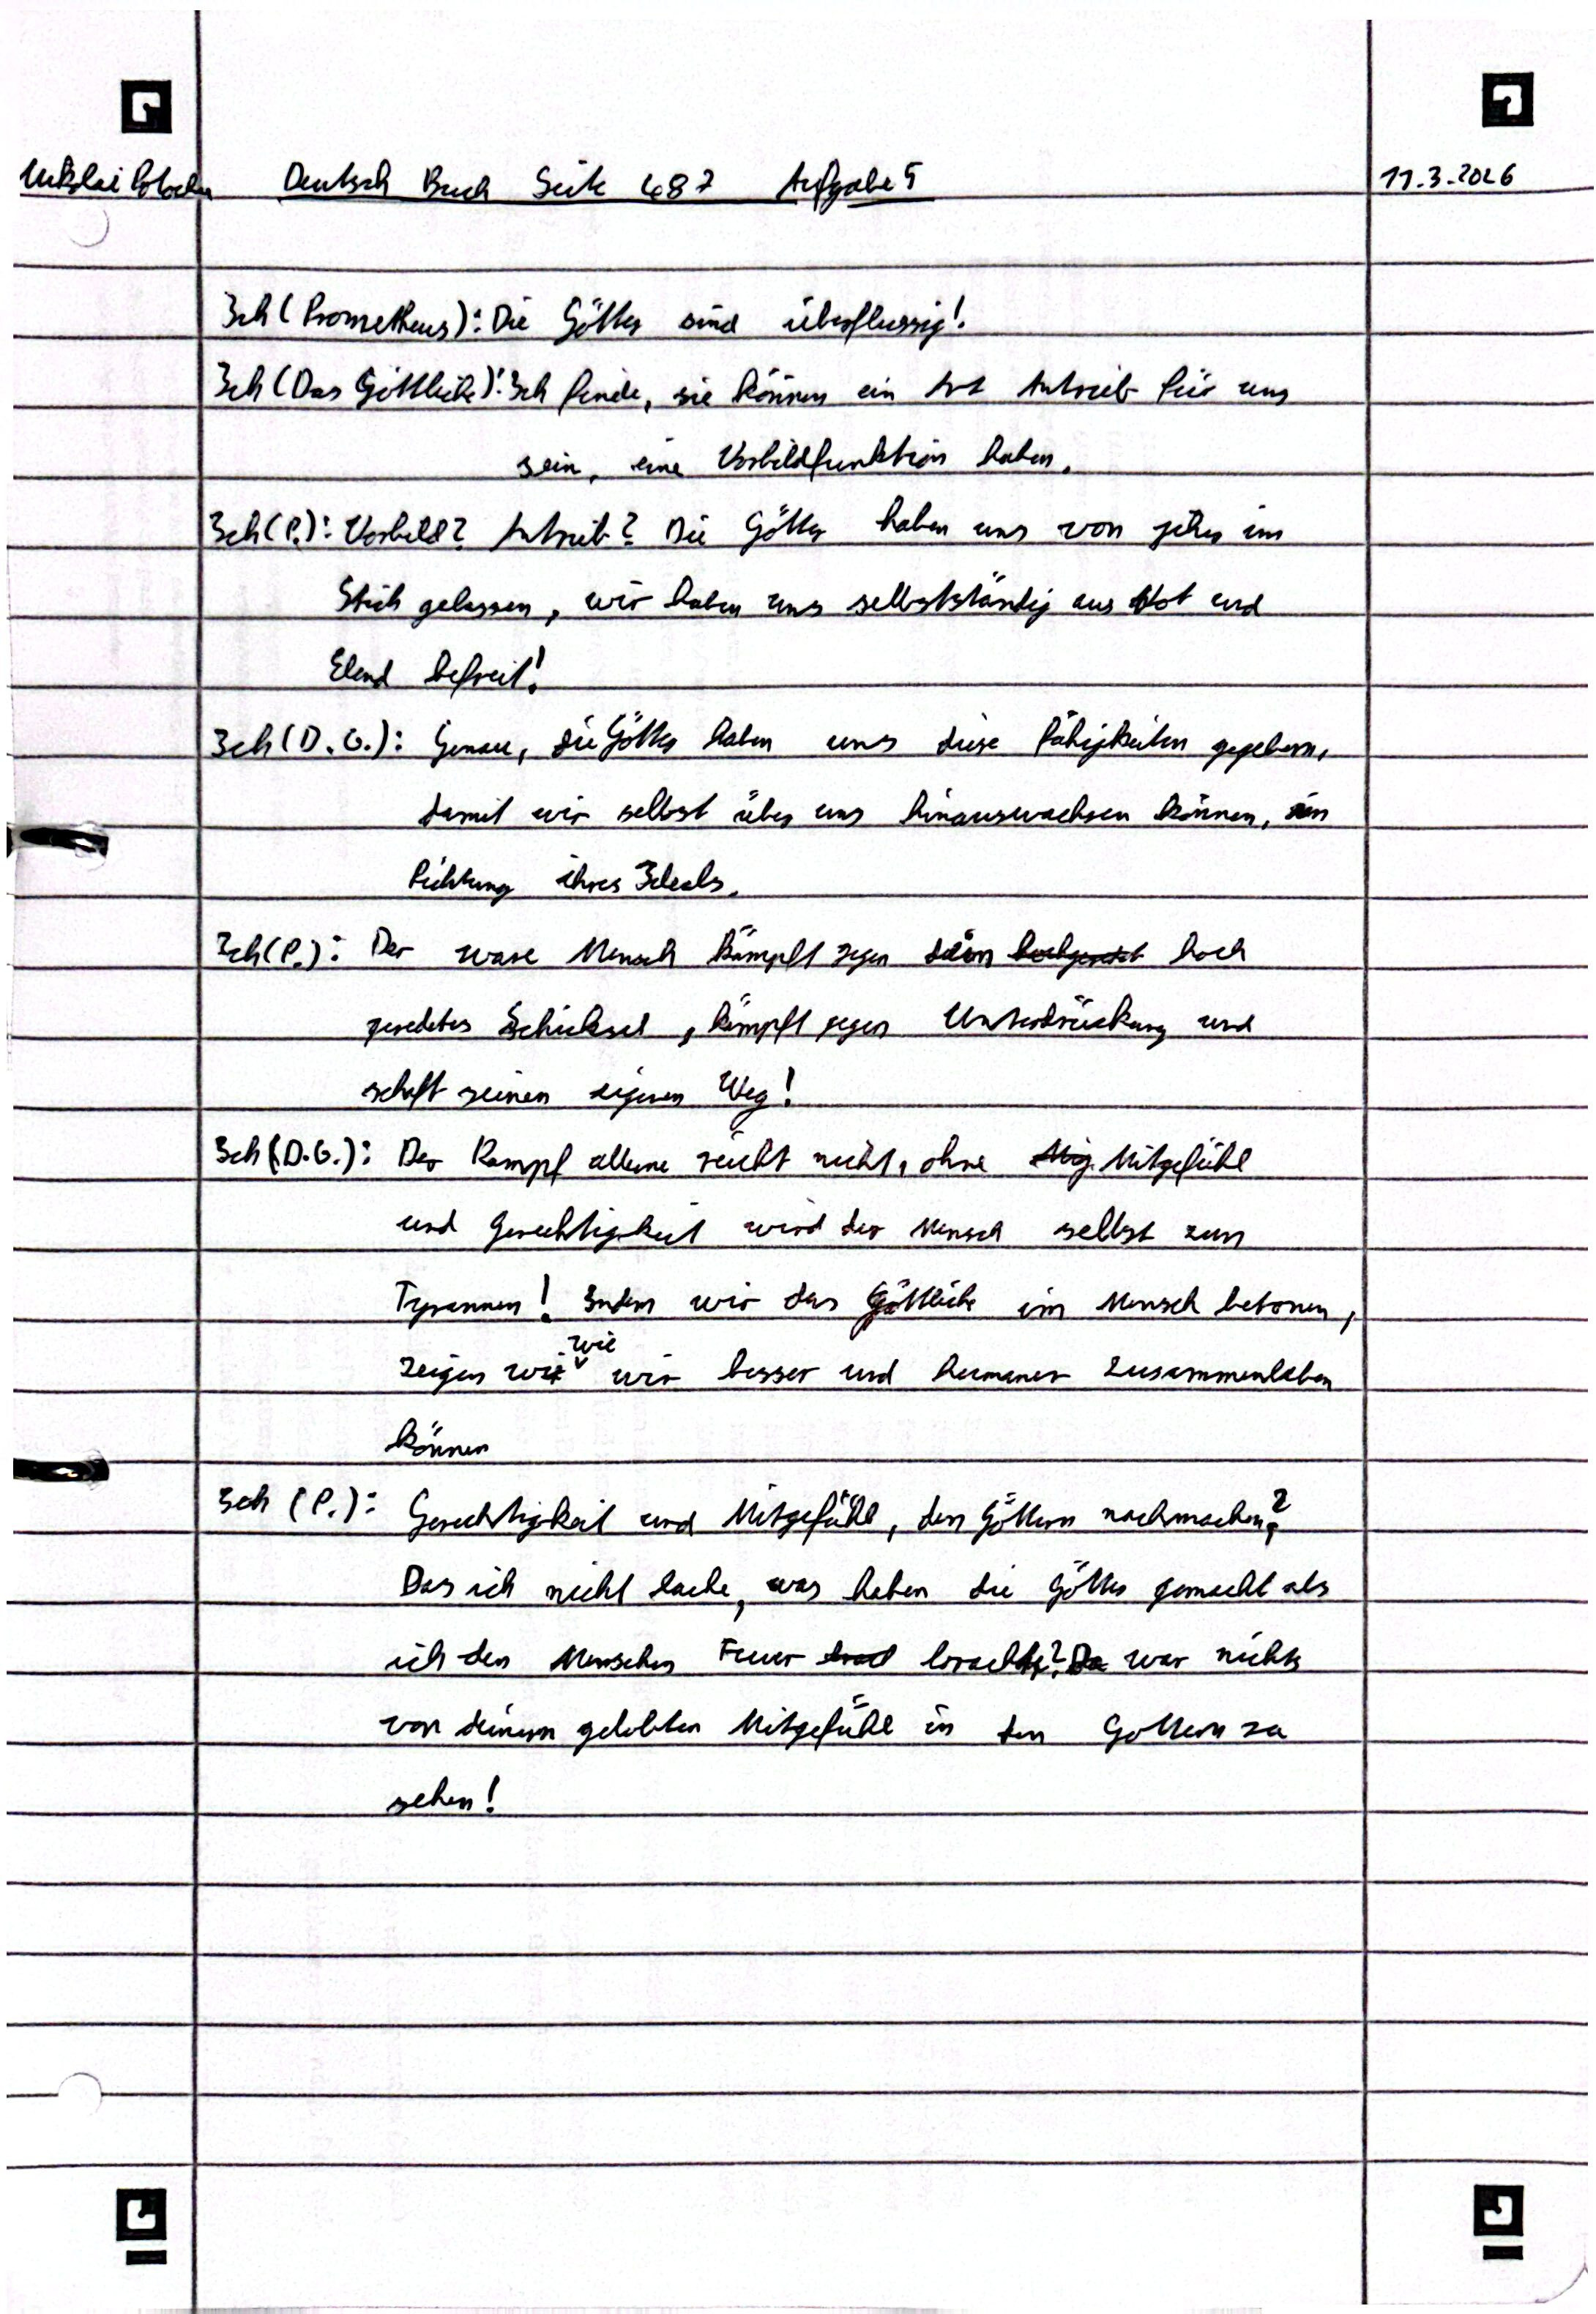 Nikolai Deutsch Buch Seite 487 Aufgabe 5 11.3.2026
Ich (Prometheus): Die Götter sind überflussig!
Ich (Das Göttliche): Ich finde, sie können ein Art Antrieb für uns
sein, eine Vorbildfunktion haben.
Ich (P.): Vorbild? Antrieb? Die Götter haben uns von jeher im
Stich gelassen, wir haben uns selbstständig aus Not und
Elend befreit!
Ich (D.G.): Genau, die Götter haben uns diese Fähigkeiten gegeben,
damit wir selbst über uns hinauswachsen können, in
Richtung ihres Ideals.
Ich (P.): Der ware Mensch kämpft gegen dein hoch
geredetes Schicksal, kämpft gegen Unterdrückung und
schaft seinen eigenen Weg!
Ich (D.G.): Der Kampf alleine reicht nicht, ohne Mitgefühl
und Gerechtigkeit wird der Mensch selbst zum
Tyrannen! Indem wir das Göttliche im Mensch betonen,
zeigen wir wie wir besser und humaner zusammenleben
können
Ich (P.): Gerechtigkeit und Mitgefühl, den Göttern nachmachen?
Das ich nicht lache, was haben die Götter gemacht als
ich den Menschen Feuer brachte? Da war nichts
von deinem gelobten Mitgefühl in den Gottern zu
sehen!